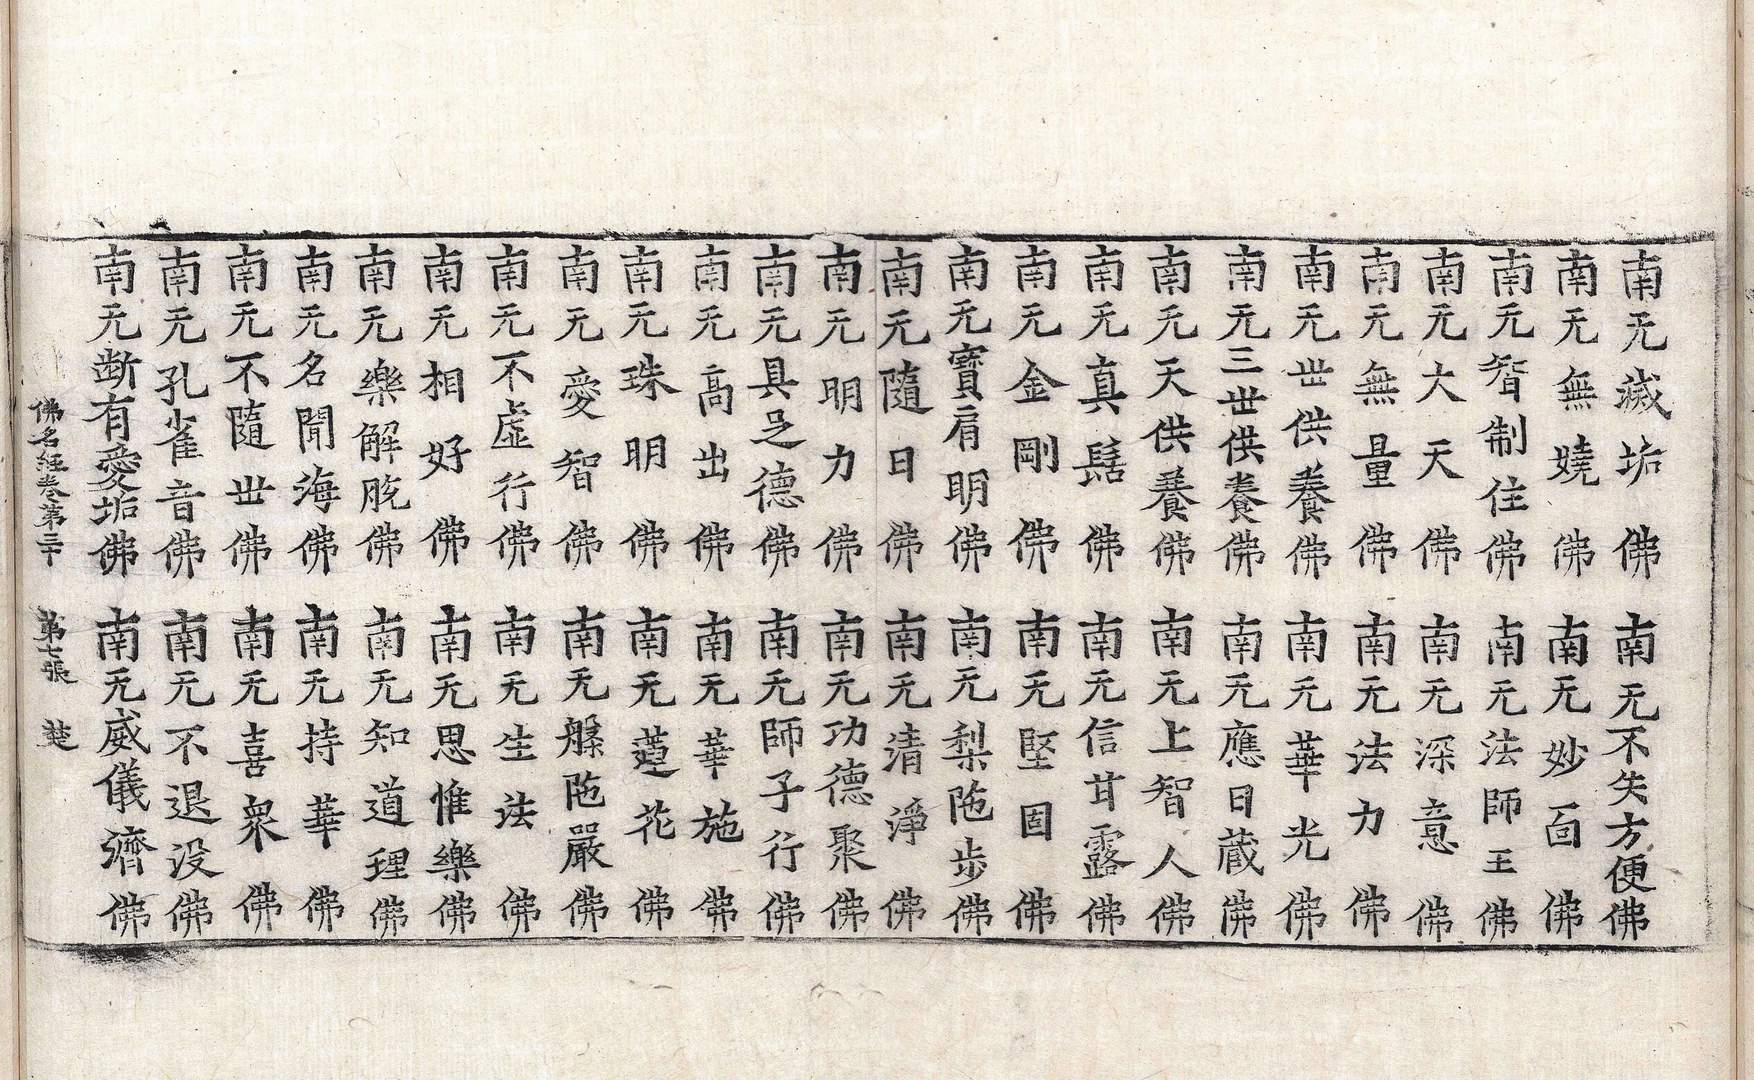 南无滅垢佛 南无不失方便佛
南无無嬈佛 南无妙面佛
南无智制住佛 南无法師王佛
南无大天佛 南无深意佛
南无無量佛 南无法力佛
南无世供養佛 南无華光佛
南无三世供養佛 南无應日藏佛
南无天供養佛 南无上智人佛
南无真髻佛 南无信甘露佛
南无金剛佛 南无堅固佛
南无寶肩明佛 南无梨陁步佛
南无隨日佛 南无清淨佛
南无明力佛 南无功德聚佛
南无具足德佛 南无師子行佛
南无高出佛 南无華施佛
南无珠明佛 南无蓮花佛
南无愛智佛 南无槃陁嚴佛
南无不虛行佛 南无生法佛
南无相好佛 南无思惟樂佛
南无樂解脫佛 南无知道理佛
南无名聞海佛 南无持華佛
南无不隨世佛 南无喜衆佛
南无孔雀音佛 南无不退没佛
南无断有愛垢佛 南无威儀濟佛
佛名経卷第三十 第七張 楚